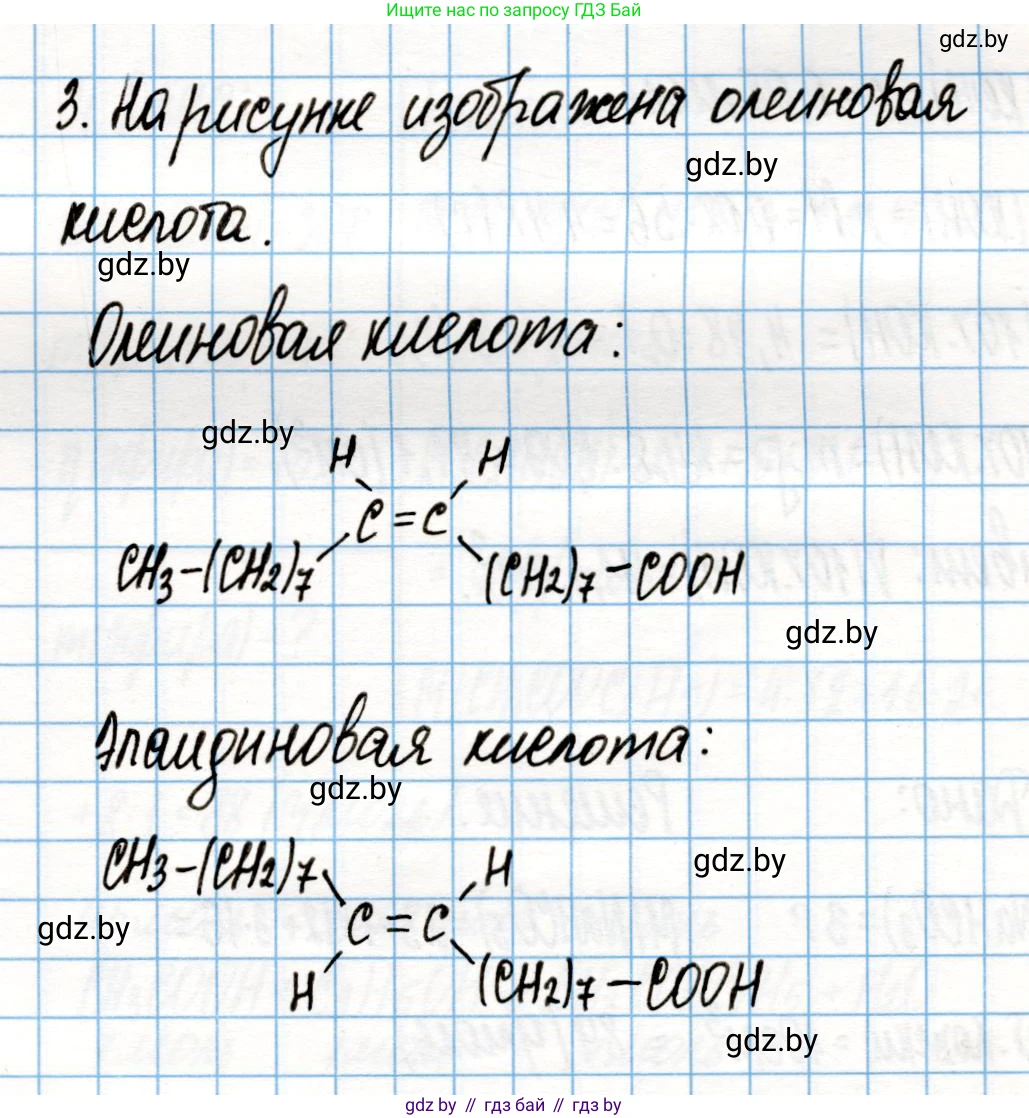 Ищите нас по запросу ГДЗ Бай
gdz.by
3. На рисунке изображена олеиновая
gdz.by
кислота.
gdz.by
Олеиновая кислота:
gdz.by
H H
C = C
CH3-(CH2)7 (CH2)7-COOH
gdz.by
Элаидиновая кислота:
gdz.by
CH3-(CH2)7 H
gdz.by
gdz.by
C = C
H (CH2)7-COOH
gdz.by
gdz by // гдз бай // гдз by